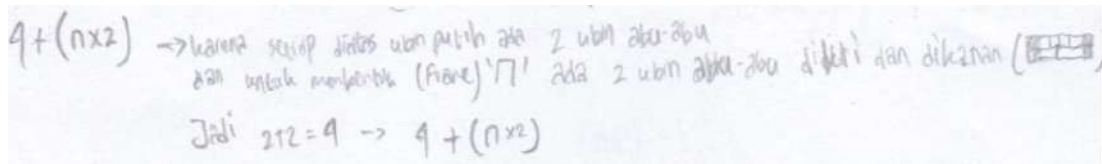 4+(n×2) → karena setiap diatas ubin putih ada 2 ubin abu-abu
dan untuk membentuk (frane) '∏' ada 2 ubin abu-abu dikiri dan dikanan (
Jadi 2+2=4 -> 4+(n×2)